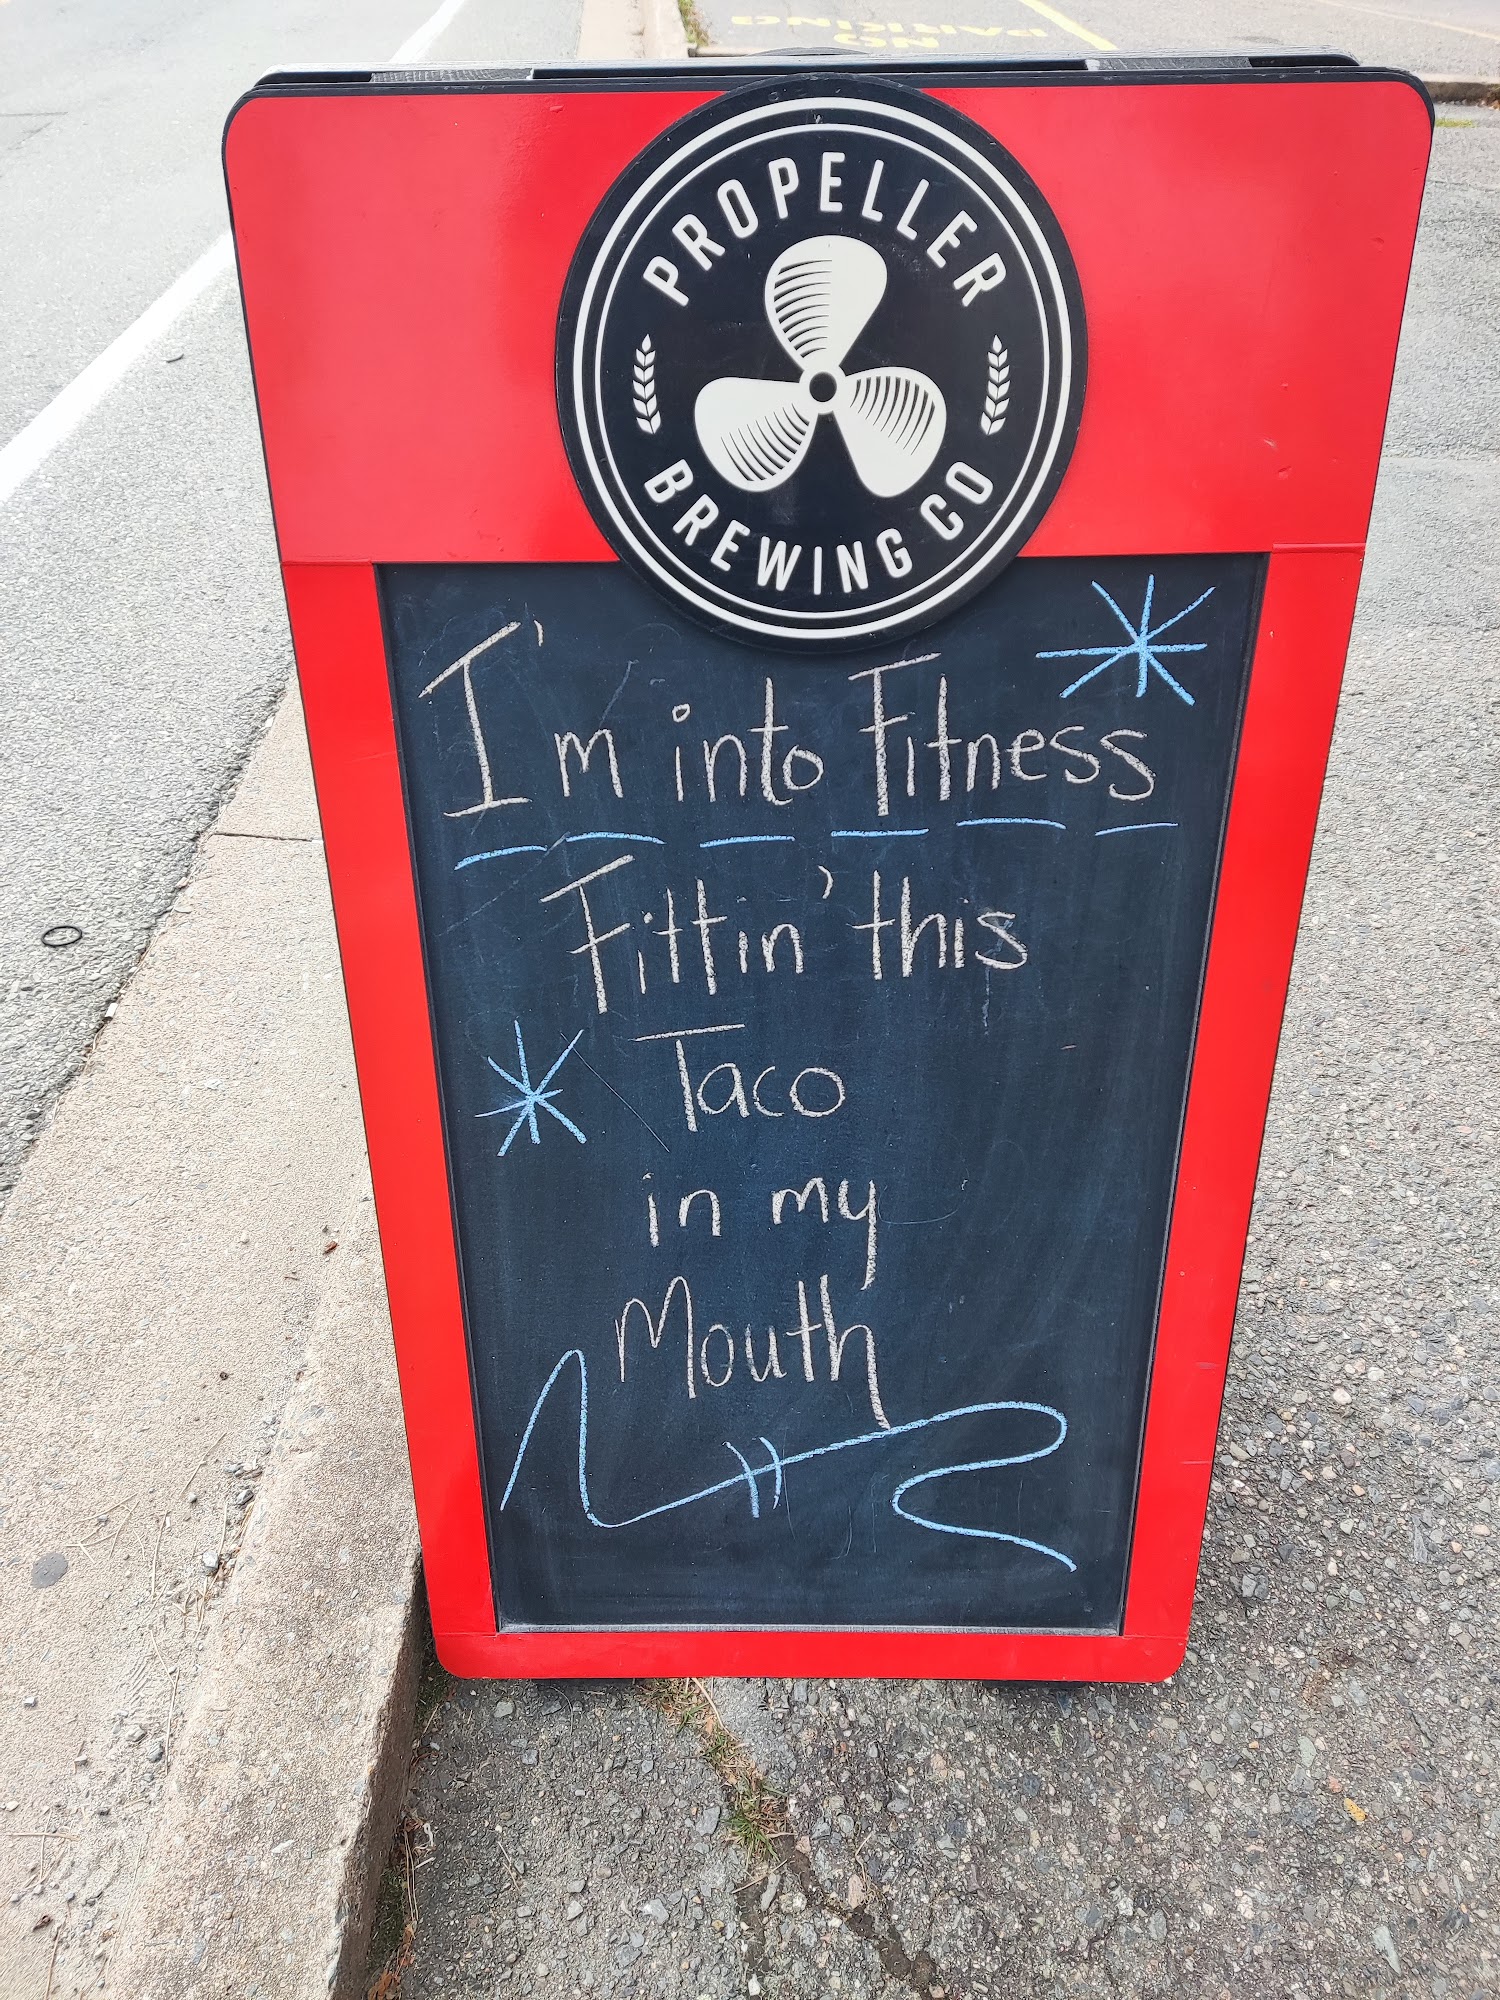 NO
PARKING
PROPELLER
BREWING CO
I'm into Fitness
Fittin' this
Taco
in my
Mouth